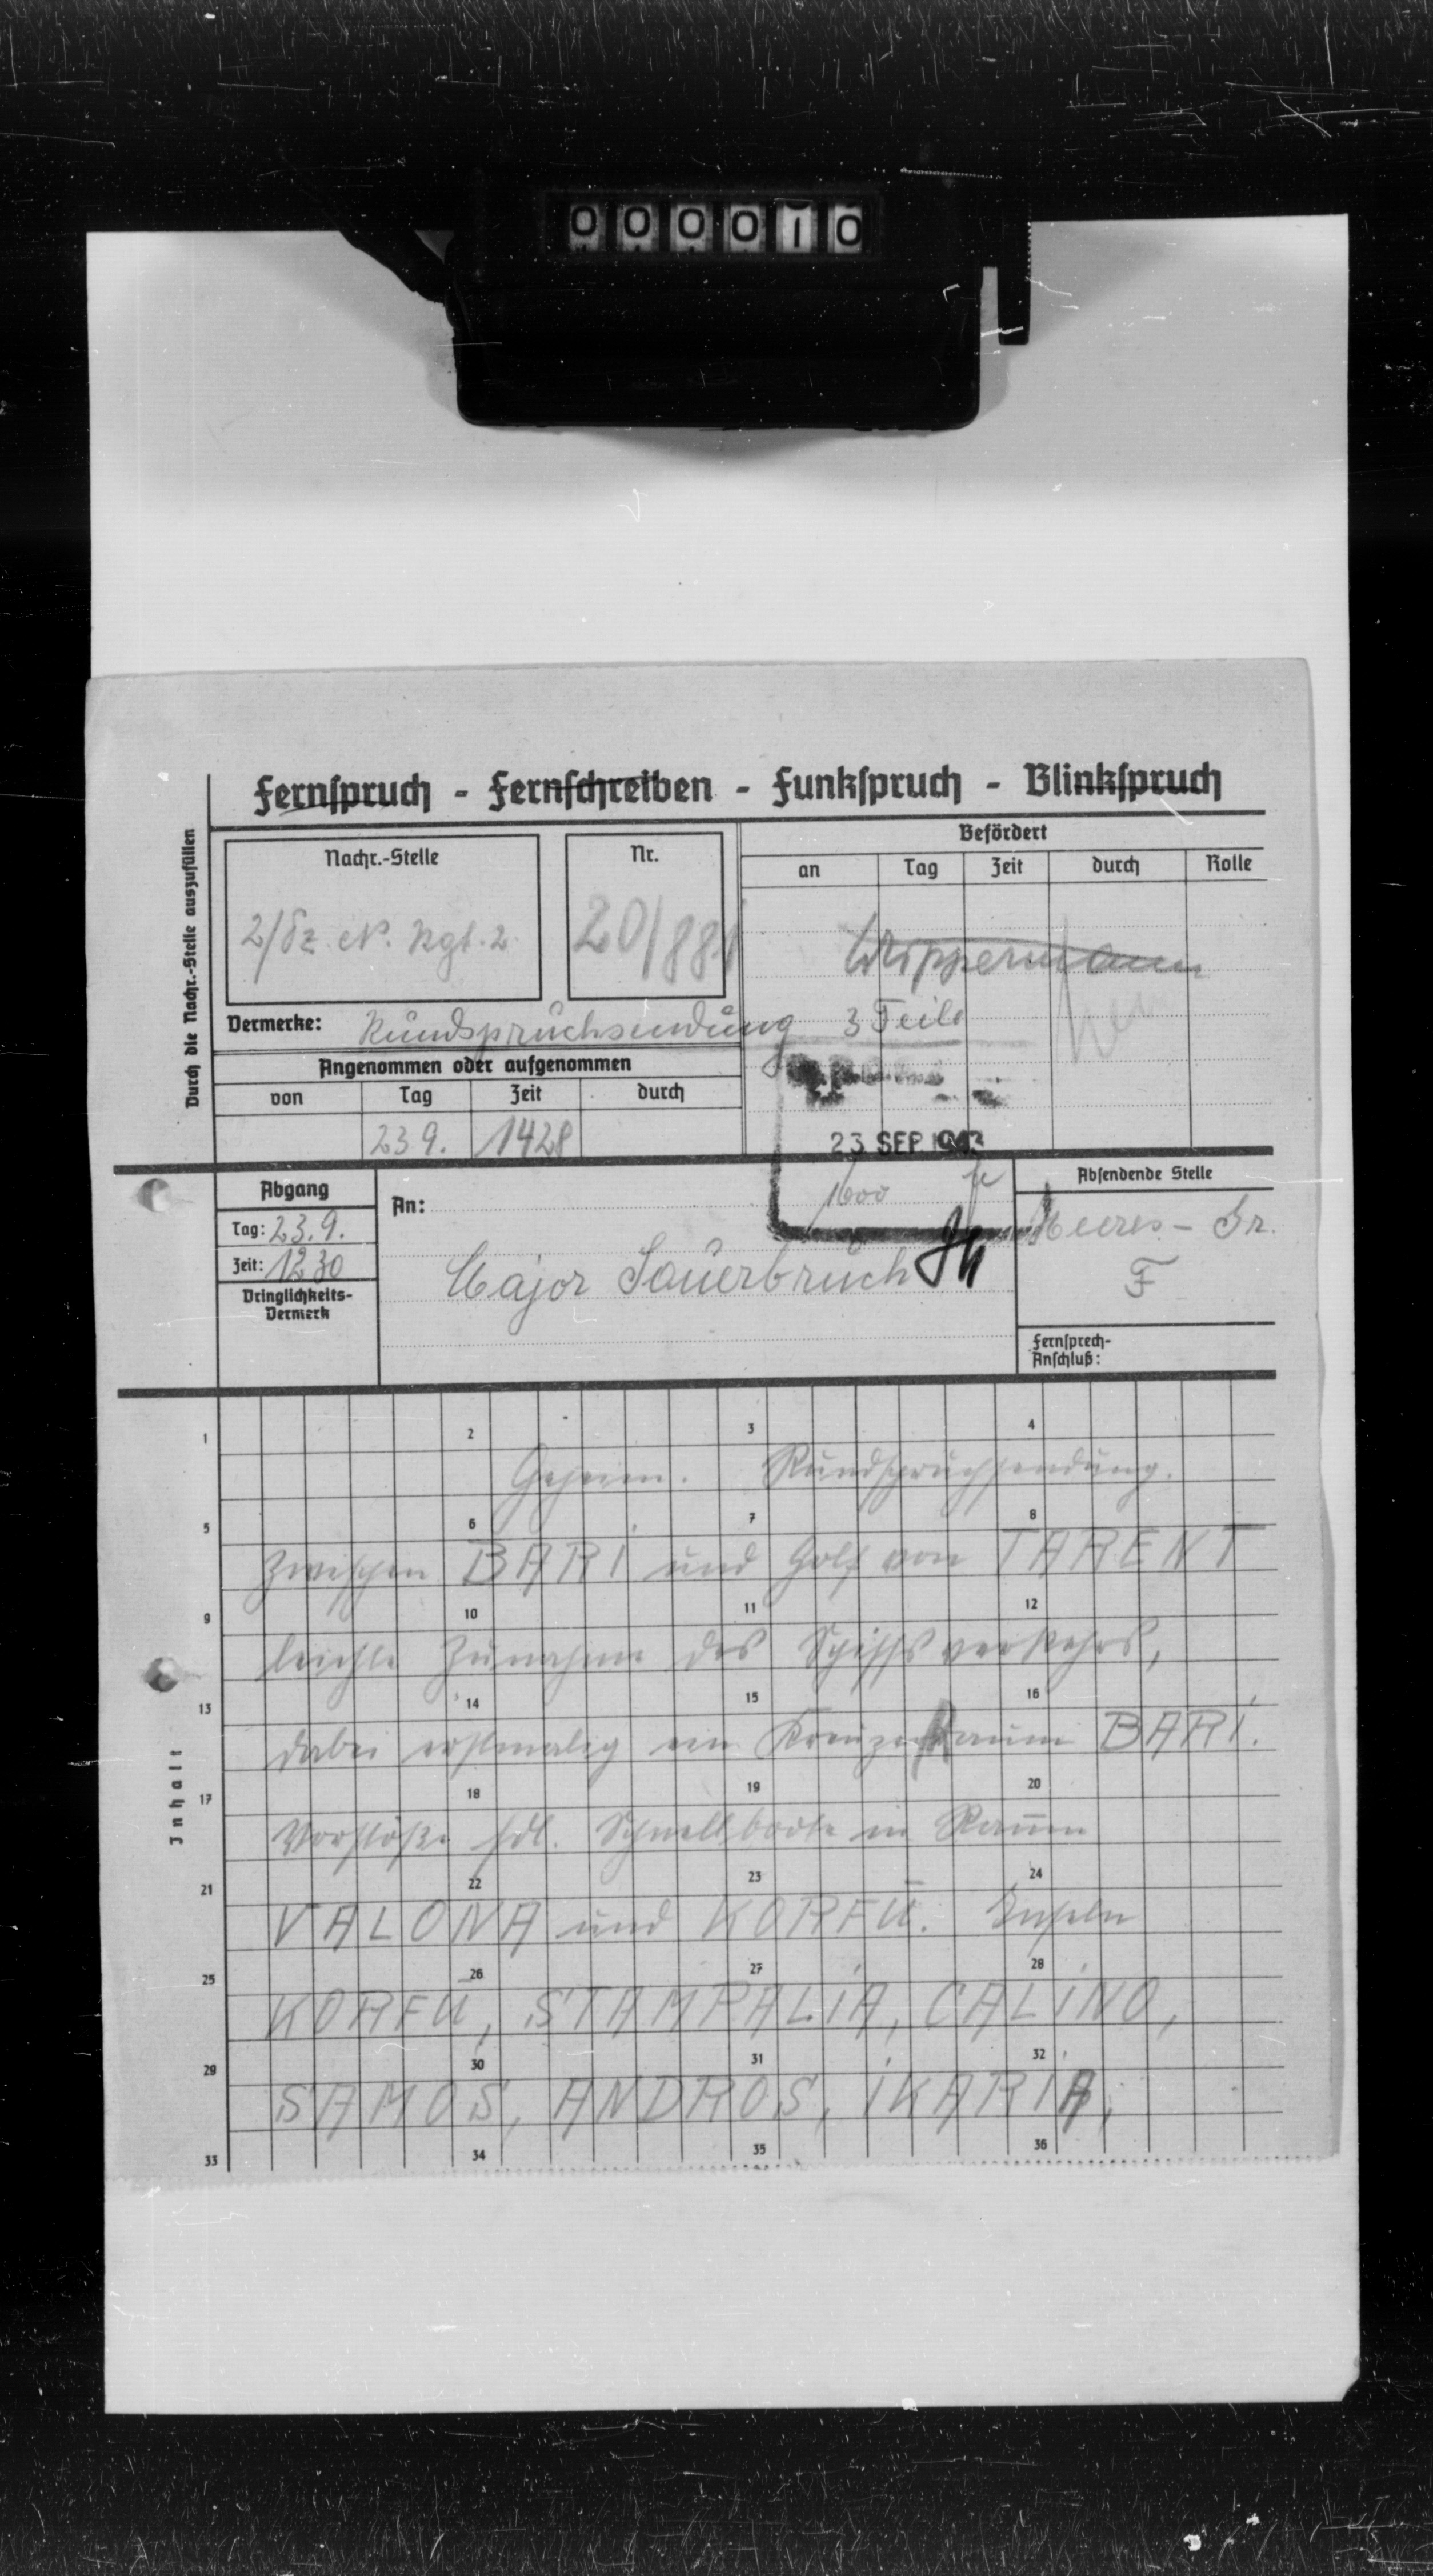 000010
Fernspruch - Fernschreiben - Funkspruch - Blinkspruch
Durch die Nachr.-Stelle auszufüllen
Nachr.-Stelle
Nr.
Befördert
an Tag Zeit durch Rolle
2/Fz. N. Rgt. 2
20/881
Vermerke: Rundspruchsendung 3 Teile
Angenommen oder aufgenommen
von Tag Zeit durch
23 9. 1428
23 SEP. 1943
1600
Abgang
Tag: 23.9.
Zeit: 1230
Dringlichkeits-
Vermerk
An:
Major Sauerbruch
Absendende Stelle
Heeres - Gr.
F
Fernsprech-
Anschluß:
Inhalt
1 2 3 4
Geheim. Rundspruchsendung.
5 6 7 8
Zwischen BARI und Golf von TARENT
9 10 11 12
leichte Zunahme des Schiffsverkehrs,
13 14 15 16
dabei erstmalig ein Kreuzer Raum BARI.
17 18 19 20
Vorstöße fdl. Schnellboote in Raum
21 22 23 24
VALONA und KORFU. Inseln
25 26 27 28
KORFU, STAMPALIA, CALINO,
29 30 31 32
SAMOS, ANDROS, IKARIA,
33 34 35 36